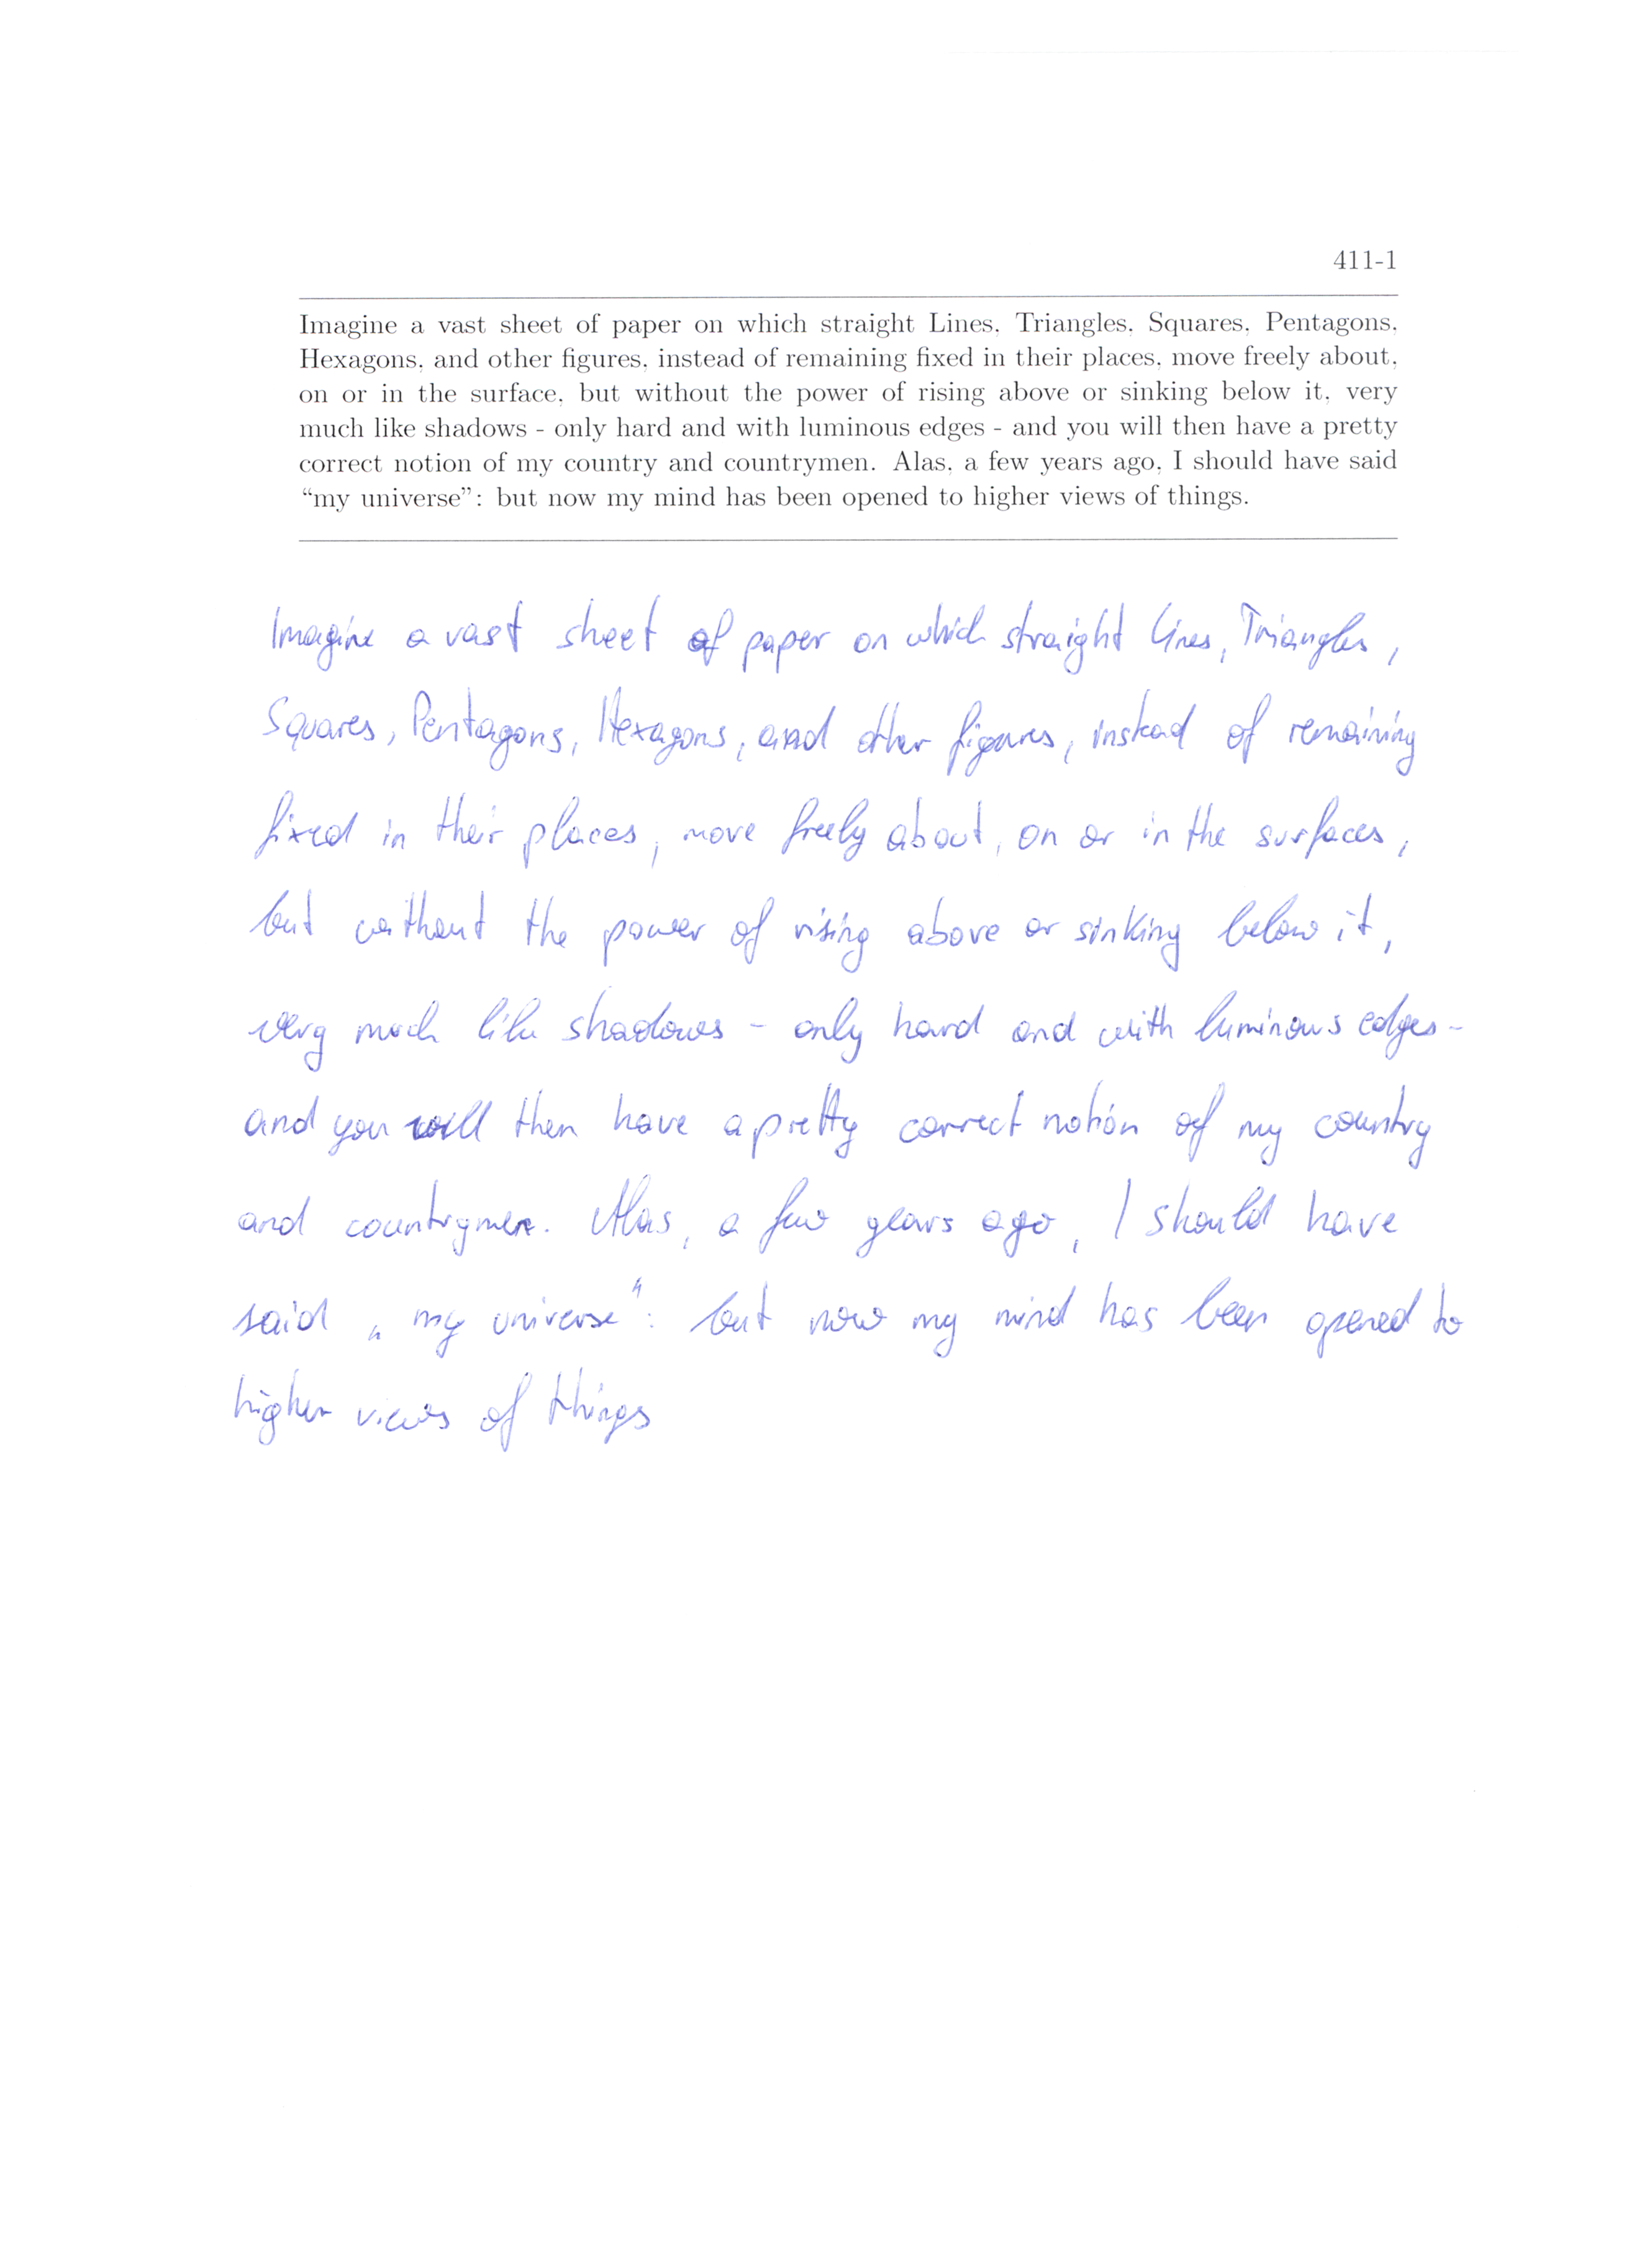 411-1
Imagine a vast sheet of paper on which straight Lines, Triangles, Squares, Pentagons,
Hexagons, and other figures, instead of remaining fixed in their places, move freely about,
on or in the surface, but without the power of rising above or sinking below it, very
much like shadows - only hard and with luminous edges - and you will then have a pretty
correct notion of my country and countrymen. Alas, a few years ago, I should have said
“my universe”: but now my mind has been opened to higher views of things.
Imagine a vast sheet of paper on which straight Lines, Triangles,
Squares, Pentagons, Hexagons, and other figures, instead of remaining
fixed in their places, move freely about, on or in the surfaces,
but without the power of rising above or sinking below it,
very much like shadows - only hard and with luminous edges -
and you will then have a pretty correct notion of my country
and countrymen. Alas, a few years ago, I should have
said „my universe“: but now my mind has been opened to
higher views of things